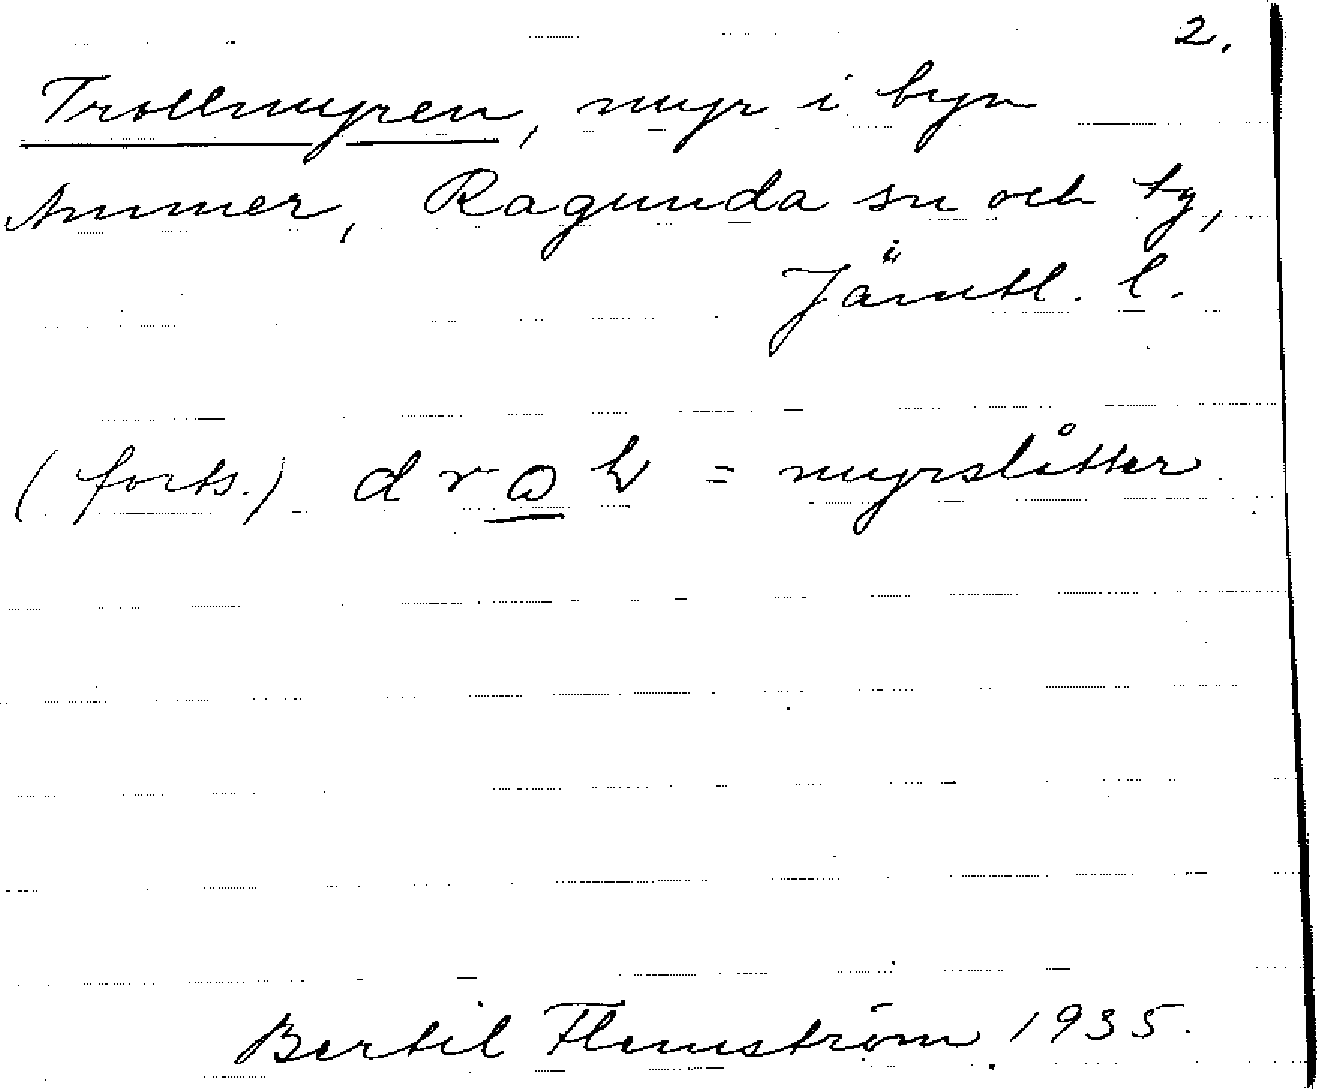 2.
Trollmyren, myr i byn
Ammer, Ragunda sn och tg,
Jämtl. l.
(forts.) = myrslåtter
Bertil Flemström 1935.